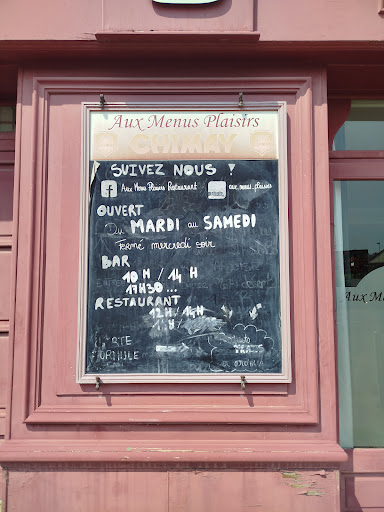 Aux Menus Plaisirs
CHIMAY
SUIVEZ NOUS !
f Aux Menus Plaisirs Restaurant aux_menus_plaisirs
OUVERT
Du MARDI au SAMEDI
Fermé mercredi soir
BAR
10 H / 14 H
17H30 ...
RESTAURANT
12H / 14H
H /
Aux Me